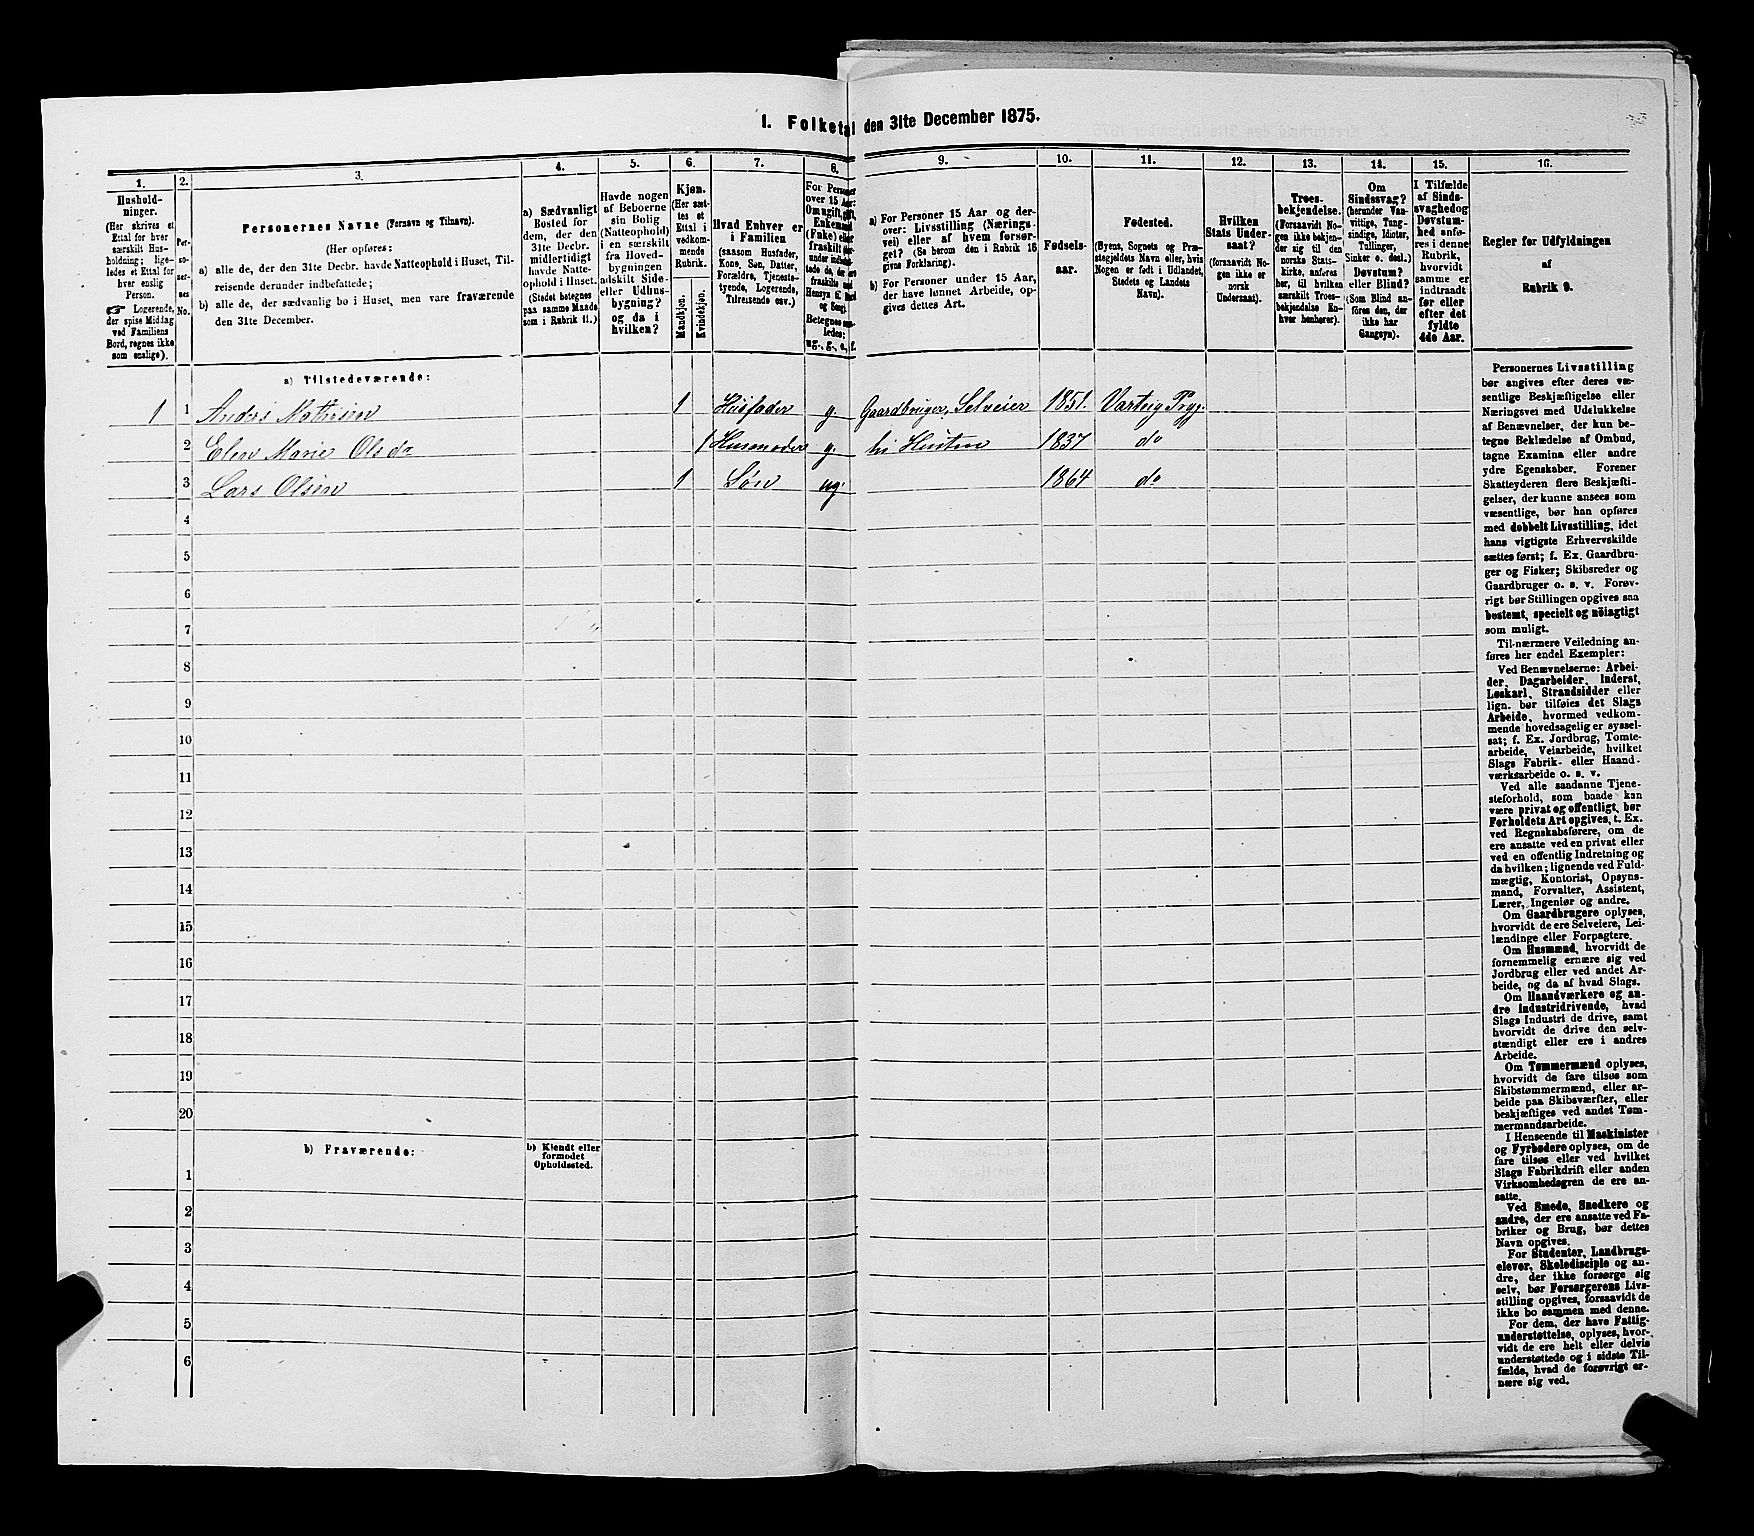 I. Folketal den 31te December 1875.
1.
Hushold-
ninger.
(Her skrives et
Ettal for hver
særskilt Hus-
holdning; lige-
ledes et Ettal for
hver enslig
Person.
Logerende,
der spise Middag
ved Familiens
Bord, regnes ikke
som enslige).
2.
Per-
so-
ner-
nes
No.
3.
Personernes Navne (Fornavn og Tilnavn).
(Her opføres:
a) alle de, der den 31te Decbr. havde Natteophold i Huset, Til-
reisende derunder indbefattede;
b) alle de, der sædvanlig bo i Huset, men vare fraværende
den 31te December.
4.
a) Sædvanligt
Bosted for
dem, der den
31te Decbr.
midlertidigt
havde Natte-
ophold i Huset.
(Stedet betegnes
paa samme Maade
som i Rubrik 11.)
5.
Havde nogen
af Beboerne
sin Bolig
(Natteophold)
i en særskilt
fra Hoved-
bygningen
adskilt Side-
eller Udhus-
bygning?
og da i
hvilken?
6.
Kjøn.
(Her sæt-
tes et
Ettal i
vedkom-
mende
Rubrik.
Mandkjøn.
Kvindekjøn.
7.
Hvad Enhver er
i Familien
(saasom Husfader,
Kone, Søn, Datter,
Forældre, Tjeneste-
tyende, Logerende,
Tilreisende osv.)
8.
For Personer
over 15 Aar:
Om ugift, gift,
Enkemand
(Enke) eller
fraskilt
og Seng).
Betegnes saa-
ledes:
ug., g., e., f.
9.
a) For Personer 15 Aar og der-
over: Livsstilling (Nærings-
vei) eller af hvem forsør-
get? (Se herom den i Rubrik 16
givne Forklaring).
b) For Personer under 15 Aar,
der have lønnet Arbeide, op-
gives dettes Art.
10.
Fødsels-
aar.
11.
Fødested.
(Byens, Sognets og Præ-
stegjeldets Navn eller, hvis
Nogen er født i Udlandet,
Stedets og Landets
Navn).
12.
Hvilken
Stats Under-
saat?
(forsaavidt No-
gen ikke er
norsk
Undersaat).
13.
Troes-
bekjendelse.
(Forsaavidt No-
gen ikke bekjen-
der sig til den
norske Stats-
kirke, anføres
her, til hvilken
særskilt Troes-
bekjendelse En-
hver henhører).
14.
Om
Sindssvag?
(herunder Van-
vittige, Tung-
sindige, Idioter,
Tullinger,
Sinker o. desl.)
Døvstum?
eller Blind?
(Som Blind an-
føres den, der
ikke har
Gangsyn).
15.
I Tilfælde
af Sinds-
svaghed og
Døvstum-
hed anfø-
res i denne
Rubrik,
hvorvidt
samme er
indtraadt
før eller
efter det
fyldte
4de Aar.
16.
Regler for Udfyldningen
af
Rubrik 9.
a) Tilstedeværende:
1 1 Anders Mathisen 1 Husfader g. Gaardbruger, Selveier 1851. Varteig Prgj.
2 Elen Marie Olsdr 1 Husmoder g. 1837 do
3 Lars Olsen 1 Søn ug. 1864 do
4
5
6
7
8
9
10
11
12
13
14
15
16
17
18
19
20
b) Fraværende:
b) Kjendt eller
formodet
Opholdssted.
1
2
3
4
5
6
Personernes Livsstilling
bør angives efter deres væ-
sentlige Beskjæftigelse eller
Næringsvei med Udelukkelse
af Benævnelser, der kun be-
tegne Beklædelse af Ombud,
tagne Examina eller andre
ydre Egenskaber. Forener
Skatteyderen flere Beskjæfti-
gelser, der kunne ansees som
væsentlige, bør han opføres
med dobbelt Livsstilling, idet
hans vigtigste Erhvervskilde
sættes først; f. Ex. Gaardbru-
ger og Fisker; Skibsreder og
Gaardbruger o. s. v. Forøv-
rigt bør Stillingen opgives saa
bestemt, specielt og nøiagtigt
som muligt.
Til nærmere Veiledning an-
føres her endel Exempler:
Ved Benævnelserne: Arbei-
der, Dagarbeider, Inderst,
Løskarl, Strandsidder eller
lign. bør tilføies det Slags
Arbeide, hvormed vedkom-
mende hovedsagelig er syssel-
sat; f. Ex. Jordbrug, Tomte-
arbeide, Veiarbeide, hvilket
Slags Fabrik- eller Haand-
værksarbeide o. s. v.
Ved alle saadanne Tjene-
steforhold, som baade kan
være privat og offentligt, bør
Forholdets Art opgives, t. Ex.
ved Regnskabsførere, om de
ere ansatte ved en privat eller
ved en offentlig Indretning og
da hvilken; lignende ved Fuld-
mægtig, Kontorist, Opsyns-
mand, Forvalter, Assistent,
Lærer, Ingeniør og andre.
Om Gaardbrugere oplyses,
hvorvidt de ere Selveiere, Lei-
lændinge eller Forpagtere.
Om Husmænd, hvorvidt de
fornemmelig ernære sig ved
Jordbrug eller ved andet Ar-
beide, og da af hvad Slags.
Om Haandværkere og an-
dre Industridrivende, hvad
Slags Industri de drive, samt
hvorvidt de drive den selv-
stændigt eller ere i andres
Arbeide.
Om Tømmermænd oplyses,
hvorvidt de fare tilsøs som
Skibstømmermænd, eller ar-
beide paa Skibsværfter, eller
beskjæftiges ved andet Tøm-
mermandsarbeide.
I Henseende til Maskinister
og Fyrbødere oplyses, om de
fare tilsøs eller ved hvilket
Slags Fabrikdrift eller anden
Virksomhedsgren de ere an-
satte.
Ved Smede, Snedkere og
andre, der ere ansatte ved Fa-
briker og Brug, bør dettes
Navn opgives.
For Studenter, Landbrugs-
elever, Skoledisciple og an-
dre, der ikke forsørge sig
selv, bør Forsørgerens Livs-
stilling opgives, forsaavidt de
ikke bo sammen med denne.
For dem, der have Fattig-
understøttelse, oplyses, hvor-
vidt de ere helt eller delvis
understøttede og i sidste Til-
fælde, hvad de forøvrigt er-
nære sig ved.